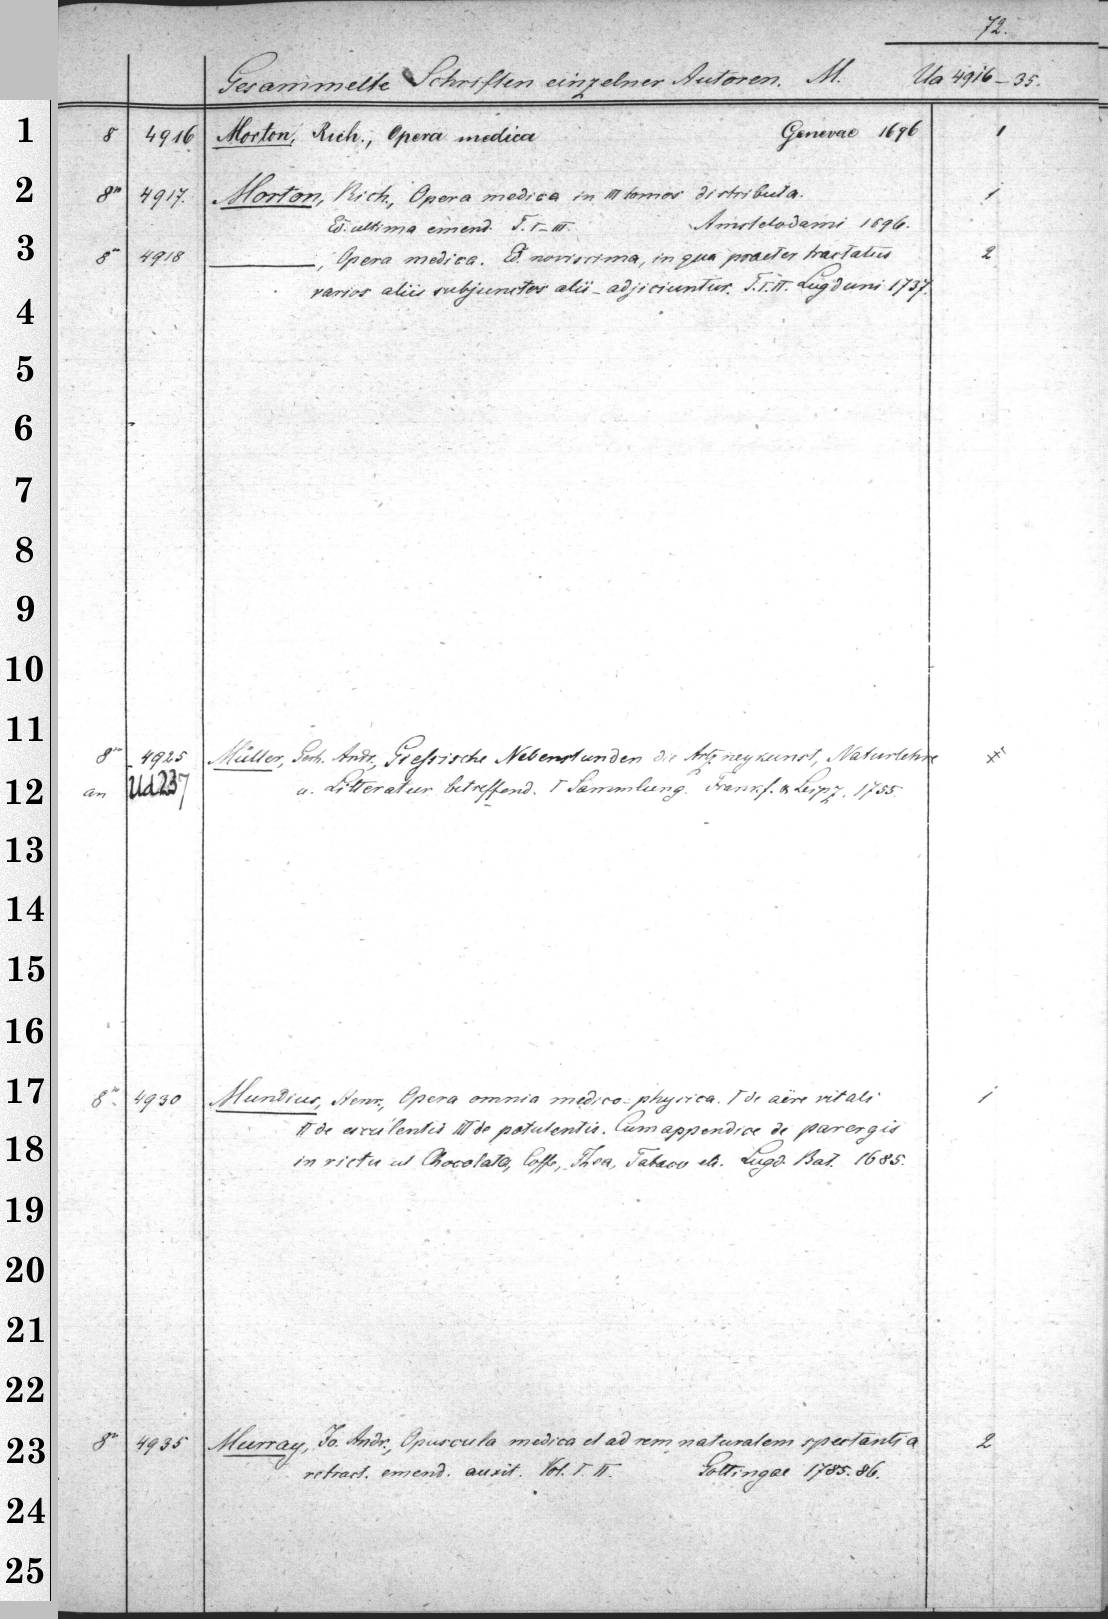 72.
Gesammelte Schriften einzelner Autoren. M. Ua 4916-35.
1 8 4916 Morton, Rich., Opera medica Genevae 1696 1
2 8º 4917. Morton, Rich., Opera medica in III tomos distributa. 1
Ed. ultima emend. T. I-III. Amstelodami 1696.
3 8º 4918 ———, Opera medica. Ed. novissima, in qua praeter tractatus 2
varios aliis subjunctos alii adjiciuntur. T. I. II. Lugduni 1737.
4
5
6
7
8
9
10
11 8º 4925 Müller, Gerh. Andr., Giessische Nebenstunden die Artzneykunst, Naturlehre
12 an Ud 237 u. Litteratur betreffend. I Sammlung. Frankf. & Leipz. 1755.
13
14
15
16
17 8º 4930 Mundius, Henr., Opera omnia medico-physica. I de aëre vitali 1
II de esculentis III de potulentis. Cum appendice de parergis
18 in victu ut Chocolata, Coffe, Thea, Tabaco etc. Lugd. Bat. 1685.
19
20
21
22
23 8º 4935 Murray, Jo. Andr., Opuscula medica et ad rem naturalem spectantia 2
retract. emend. auxit. Vol. I. II. Gottingae 1785. 86.
24
25